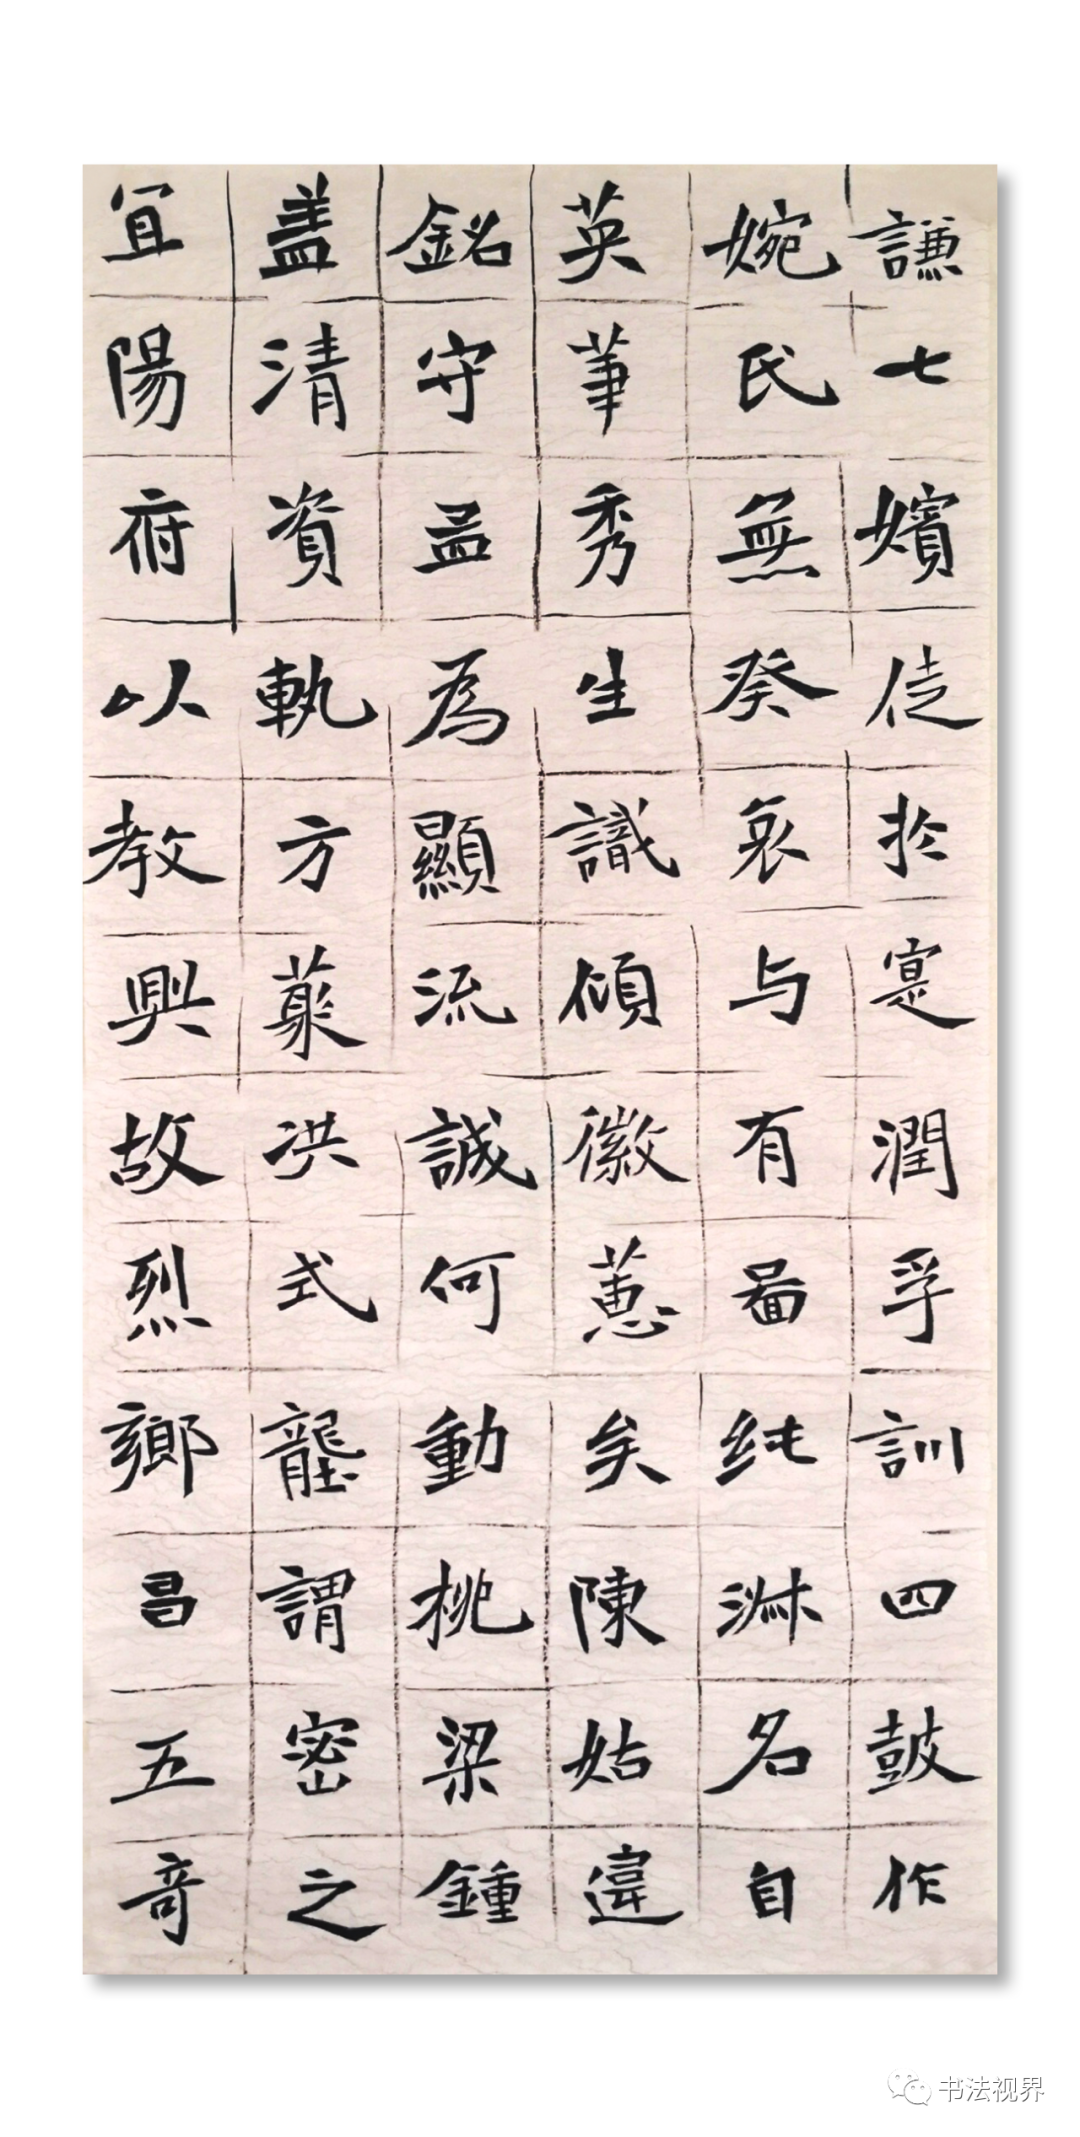 謙七嬪徒於寔潤孚訓四鼓作
婉氏無癸哀与有啚純淋名自
英華秀生識傾徽蕙矣陳姑寔
銘守孟為顯流誠何動桃梁鍾
蓋清資軌方蘂洪式壟謂密之
宜陽府以教興故烈鄉昌五竒
书法视界